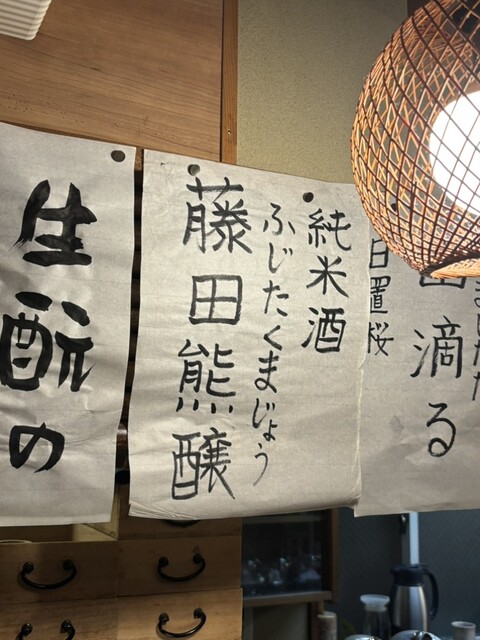 山滴る
日置桜
純米酒
ふじたくまじょう
藤田熊醸
生酛の